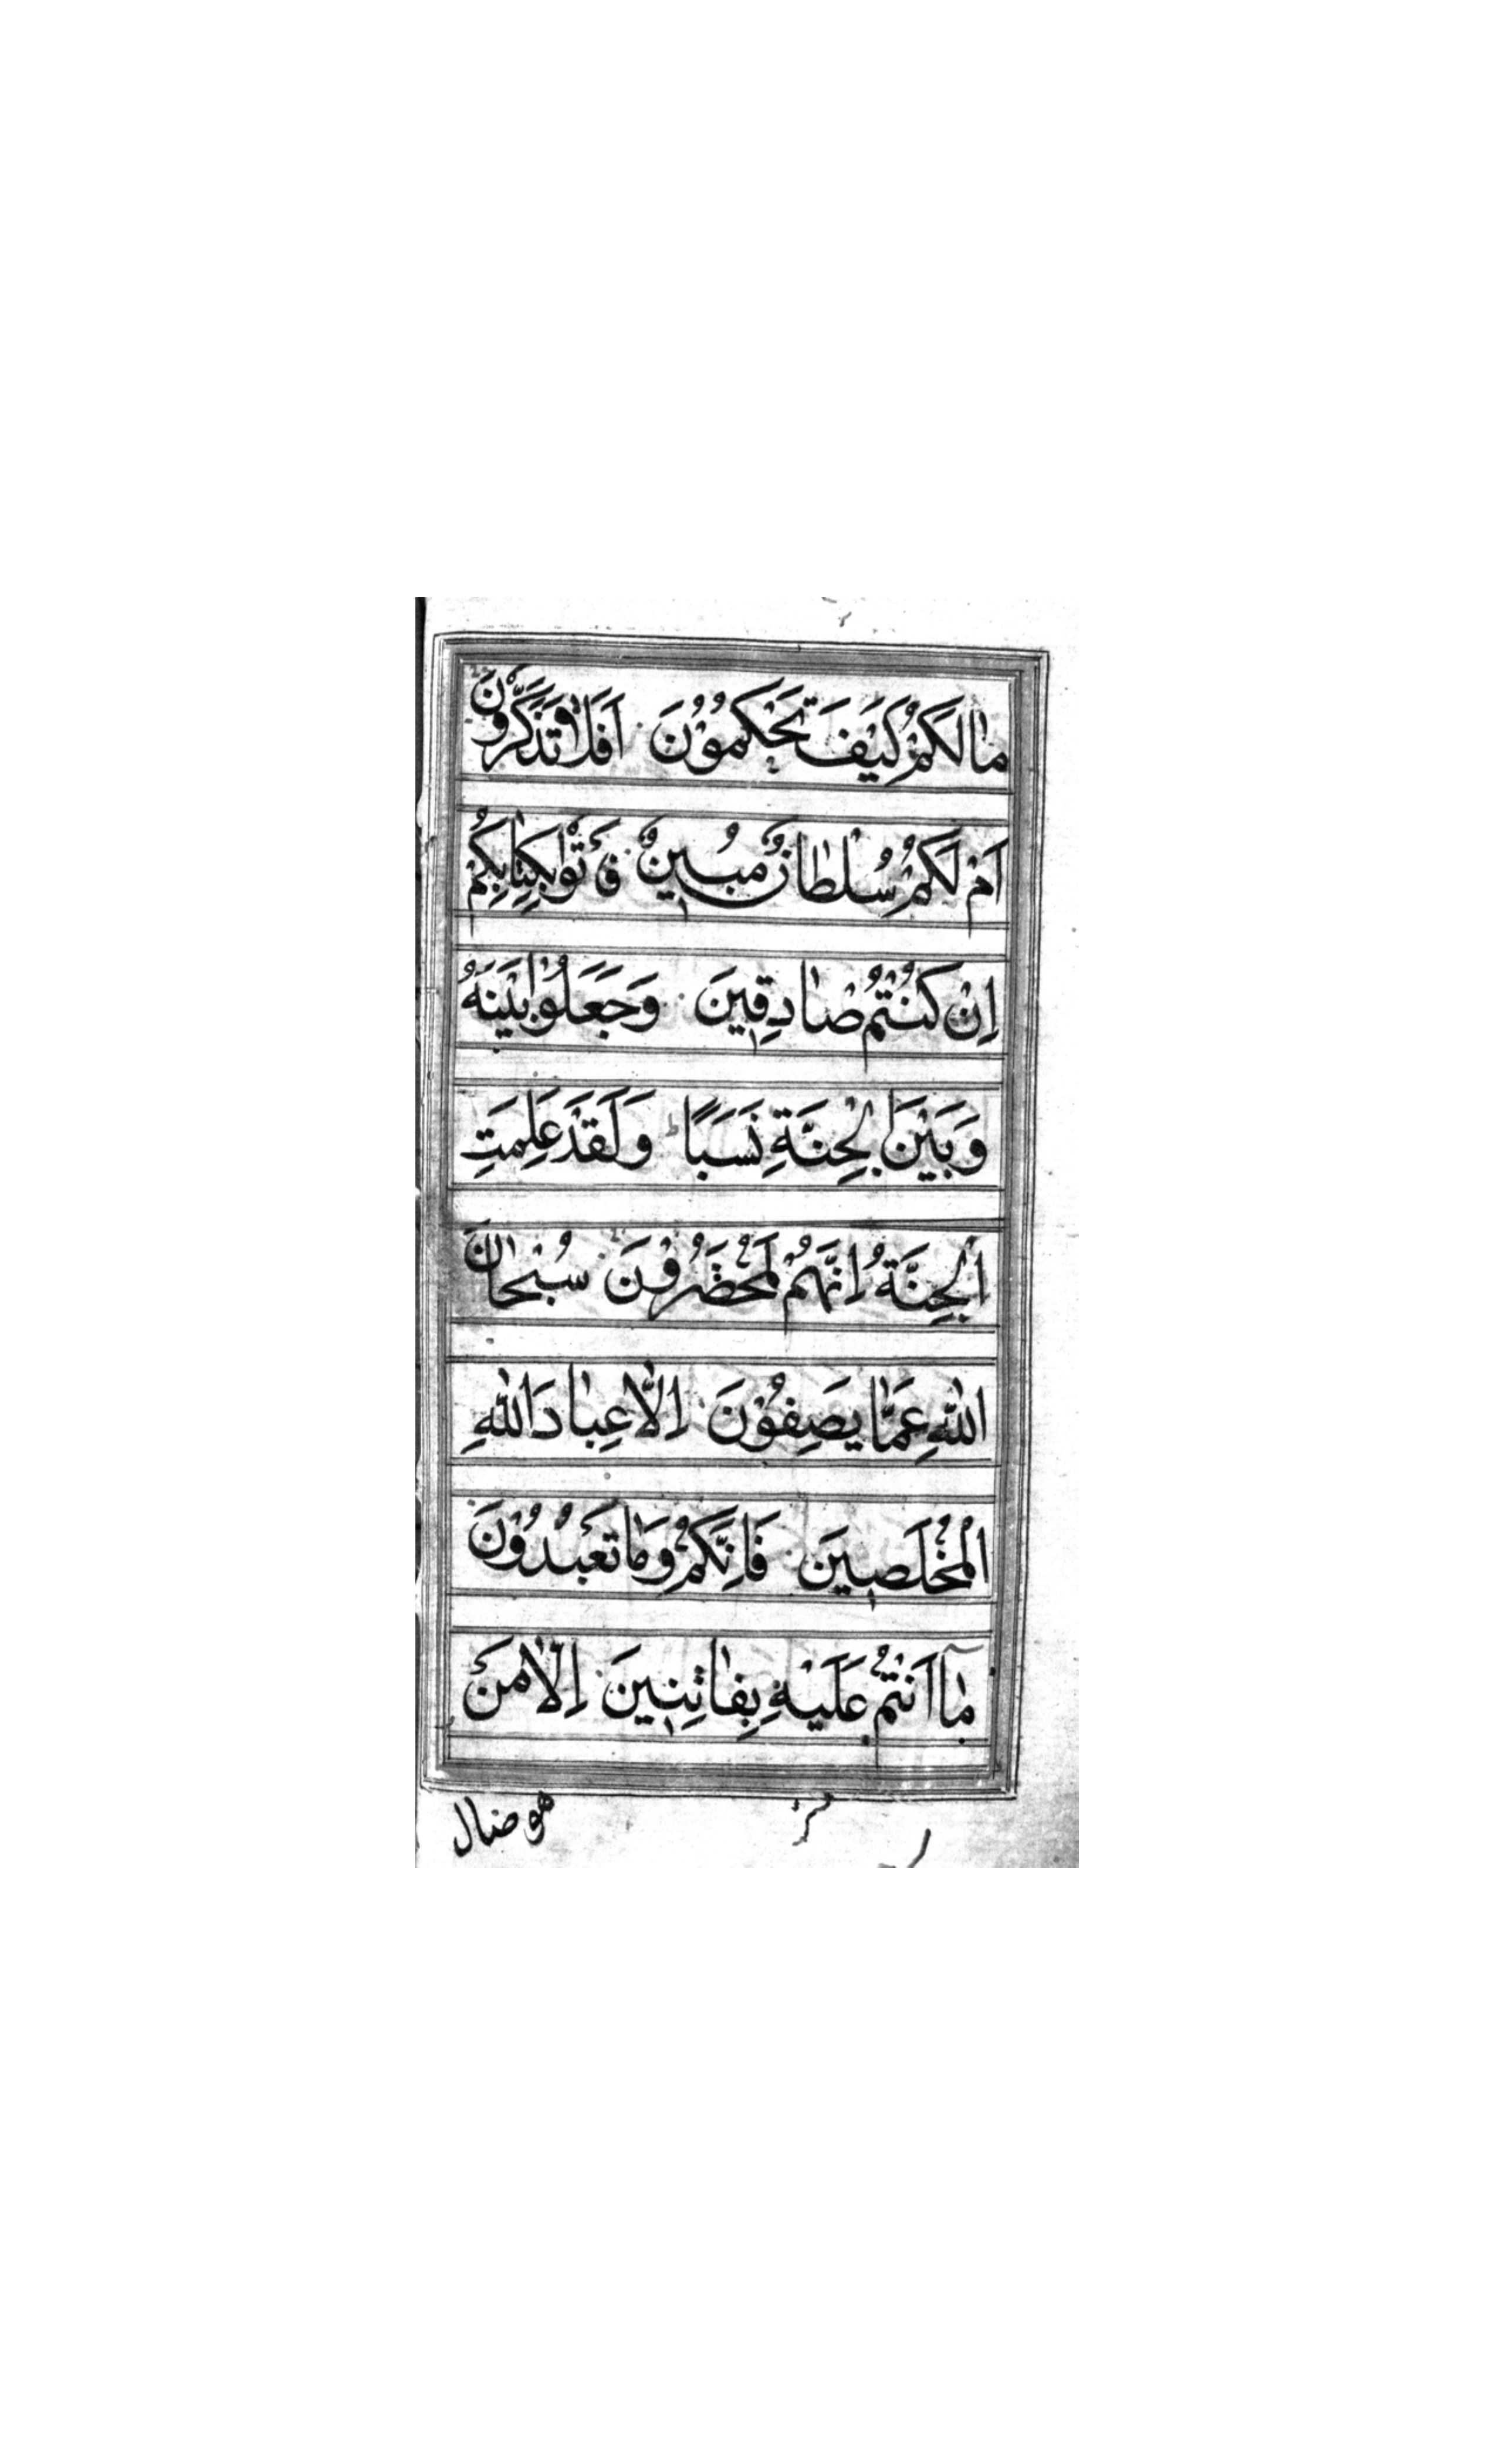 مٰا لَكُمْ كَيْفَ تَحْكُمُوْنَ اَفَلٰا تَذَكَّرُوْنَ
اَمْ لَكُمْ سُلْطٰانٌ مُبِينٌ فَأْتُوْا بِكِتٰابِكُمْ
اِنْ كُنْتُمْ صٰادِقِينَ وَجَعَلُوْا بَيْنَهُ
وَبَيْنَ الْجِنَّةِ نَسَبًا وَلَقَدْ عَلِمَتِ
الْجِنَّةُ اِنَّهُمْ لَمُحْضَرُوْنَ سُبْحٰانَ
اللّٰهِ عَمّٰا يَصِفُوْنَ اِلّٰا عِبٰادَ اللّٰهِ
الْمُخْلَصِينَ فَاِنَّكُمْ وَمٰا تَعْبُدُوْنَ
مٰٓا اَنْتُمْ عَلَيْهِ بِفٰاتِنِينَ اِلّٰا مَنْ
هو صال